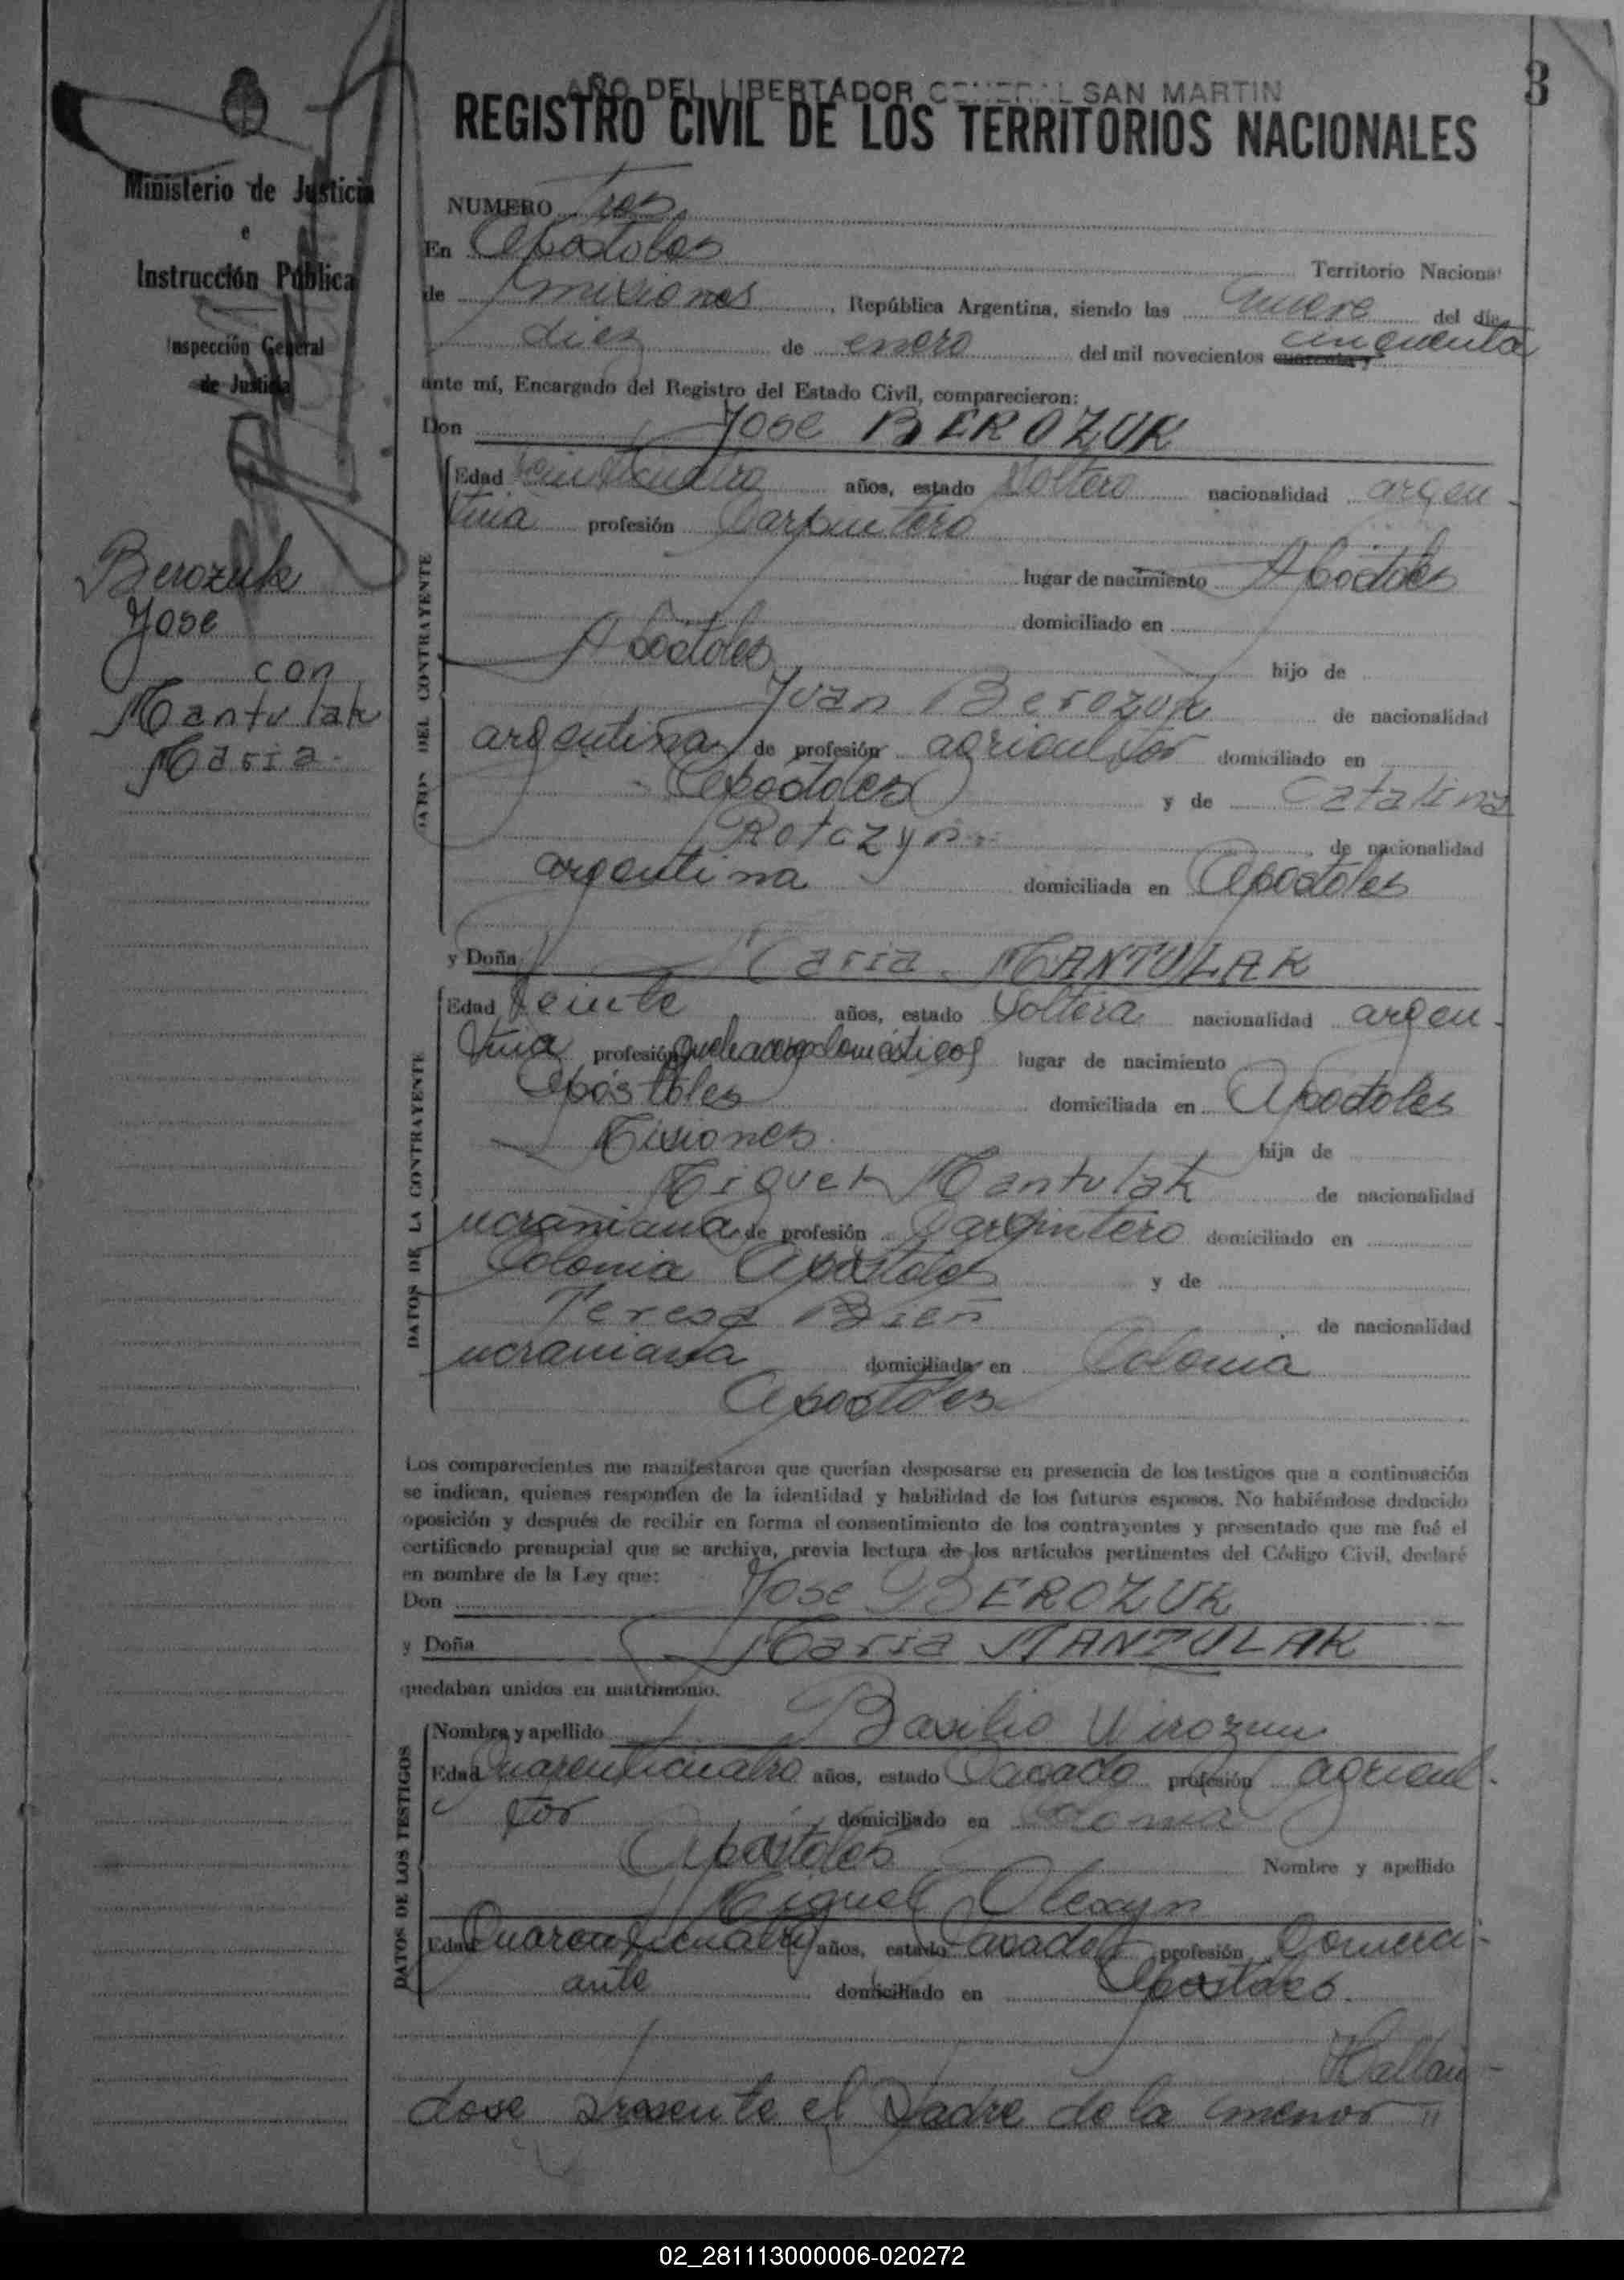 3
AÑO DEL LIBERTADOR GENERAL SAN MARTIN
REGISTRO CIVIL DE LOS TERRITORIOS NACIONALES
Ministerio de Justicia
e
Instrucción Pública
Inspección General
de Justicia
Berozuk
Jose
con
Mantulak
Maria.
NUMERO Tres
En Apostoles Territorio Nacional
de misiones, República Argentina, siendo las nueve del día
diez de enero del mil novecientos cuarenta y cincuenta
ante mí, Encargado del Registro del Estado Civil, comparecieron:
Don Jose BEROZUK
DATOS DEL CONTRAYENTE
Edad veinticuatro años, estado Soltero nacionalidad argen-
tina profesión Carpintero
lugar de nacimiento Apostoles
domiciliado en
Apostoles hijo de
Juan Berozuk de nacionalidad
argentina de profesión agricultor domiciliado en
Apostoles y de Catalina
de nacionalidad
argentina domiciliada en Apostoles
y Doña Maria MANTULAK
DATOS DE LA CONTRAYENTE
Edad Veinte años, estado Soltera nacionalidad argen-
tina profesión quehaceres domésticos lugar de nacimiento
Apóstoles domiciliada en Apostoles
Misiones hija de
Miguel Mantulak de nacionalidad
ucraniana de profesión Carpintero domiciliado en
Colonia Apostoles y de
Teresa Bień de nacionalidad
ucraniana domiciliada en Colonia
Apostoles
Los comparecientes me manifestaron que querían desposarse en presencia de los testigos que a continuación
se indican, quienes responden de la identidad y habilidad de los futuros esposos. No habiéndose deducido
oposición y después de recibir en forma el consentimiento de los contrayentes y presentado que me fué el
certificado prenupcial que se archiva, previa lectura de los artículos pertinentes del Código Civil, declaré
en nombre de la Ley que:
Don Jose BEROZUK
y Doña Maria MANTULAK
quedaban unidos en matrimonio.
DATOS DE LOS TESTIGOS
Nombre y apellido Basilio
Edad Cuarenticuatro años, estado Casado profesión agricul-
tor domiciliado en Colonia
Apostoles Nombre y apellido
Miguel Olexyn
Edad Cuarenticuatro años, estado Casado profesión Comerci-
ante domiciliado en Apostoles.
Hallan-
dose presente el Padre de la menor "
02_281113000006-020272